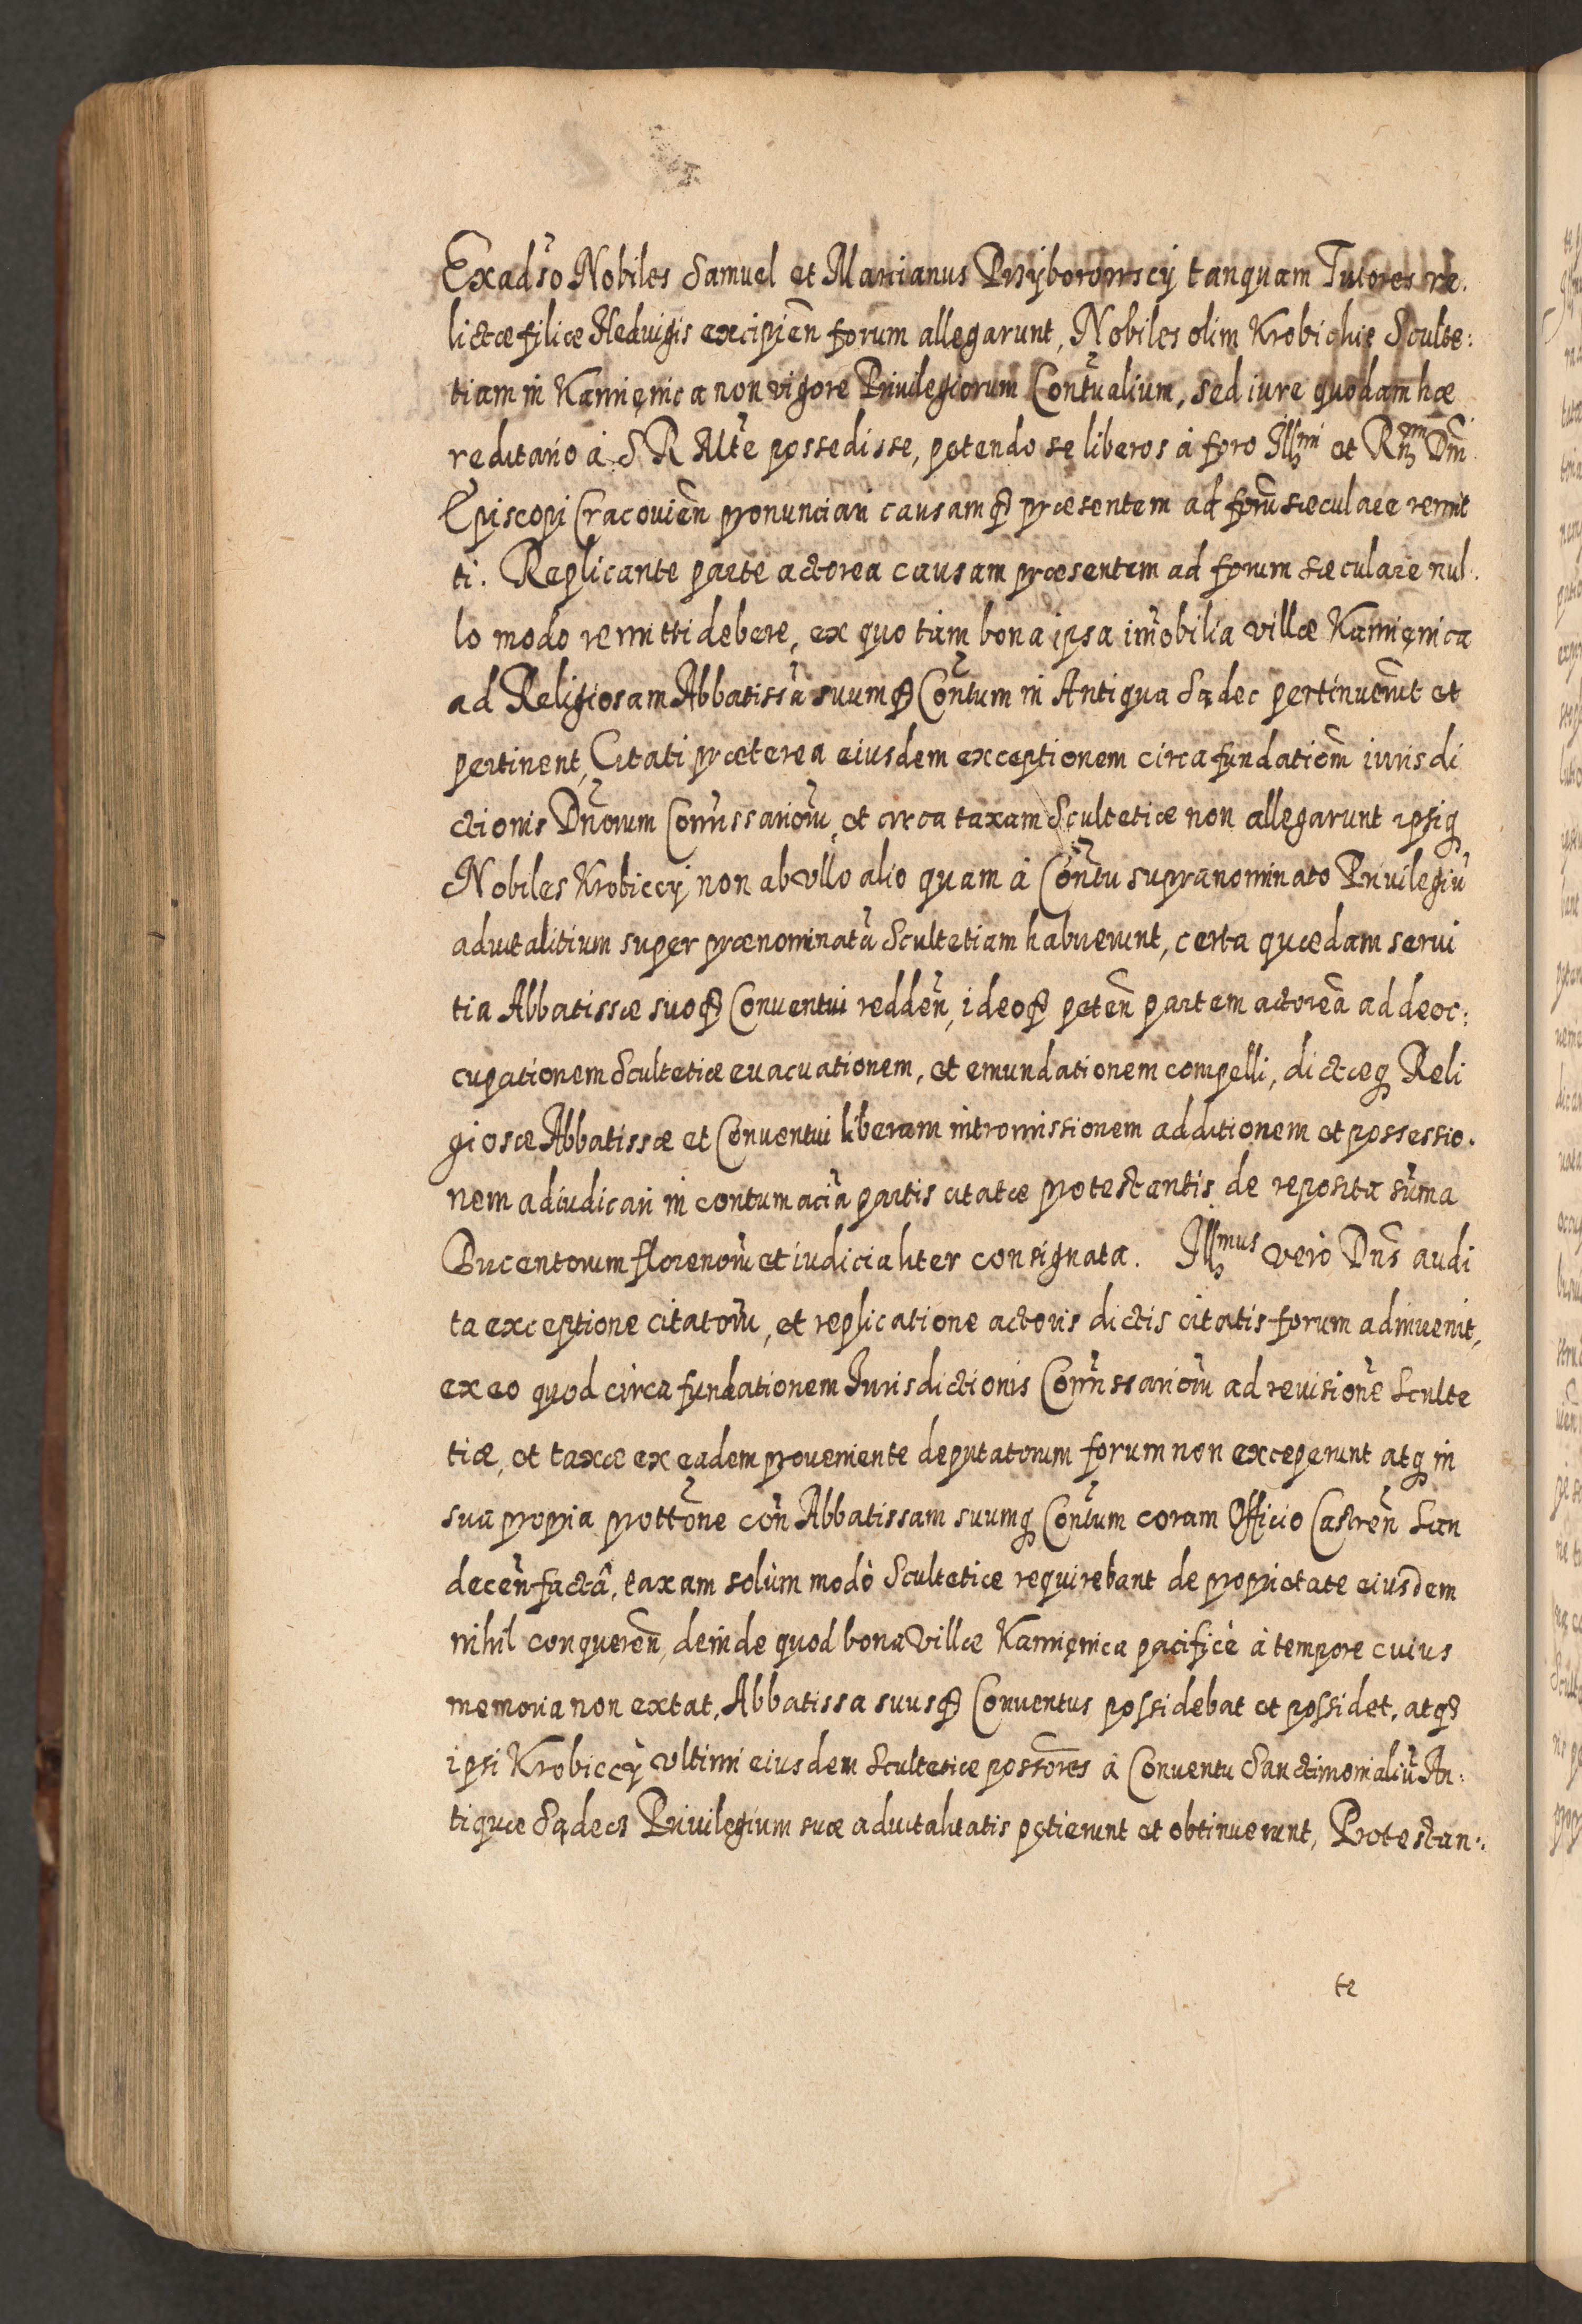 Exadṽso Nobiles Samuel et Marcianus Przÿborowscÿ tanquam Tutores re-
lictæ filiæ Heduigis excipien̄ forum allegarunt, Nobiles olim Krobickie Sculte:
tiam in Kamięnica non vigore Priuilegiorum Con̄tualium, sed iure quodam hæ
reditario à S R Mt̄e possedisse, petendo se liberos à foro Illmi et Rm̄i Dn̄i
Episcopi Cracouien̄ pronunciari causamq̃ præsentem ad forū sæculare remit
ti. Replicante parte actorea causam præsentem ad forum sæculare nul-
lo modo remitti debere, ex quo tam bona ipsa im̄obilia villæ Kamięnica
ad Religiosam Abbatissā suumq̃ Con̄tum in Antiqua Sądec pertinuerūt et
pertinent, Citati præterea eiusdem exceptionem circa fundatiom̄ iurisdi
ctionis Dn̄orum Com̄issariorū, et circa taxam Scultetiæ non allegarunt ipsiq̃
Nobiles Krobiccÿ non ab vllo alio quam à Con̄tu supranominato Priuilegiū
aduitalitium super prænominatā Scultetiam habuerunt, certa quædam serui
tia Abbatissæ suoq̃ Conuentui redden̄, ideoq̃ peten̄ partem actoreā ad deoc:
cupationem Scultetiæ euacuationem, et emundationem compelli, dictæq̃ Reli
giosæ Abbatissæ et Conuentui liberam intromissionem additionem et possessio-
nem adiudicari in contumaciā partis citatæ protestantis de reposita sūma
Ducentorum florenorū et iudicialiter consignata. Illmus vero Dn̄s audi
ta exceptione citatorū, et replicatione actoris dictis citatis forum adinuenit,
ex eo quod circa fundationem Jurisdictionis Com̄issariorū ad reuisionē Sculte
tiæ, et taxæ ex eadem proueniente deputatorum forum non exceperunt atq̃ in
sua propria prottōne con̄ Abbatissam suumq̃ Con̄tum coram Officio Castren̄ San
decen̄ factâ, taxam solùm modò Scultetiæ requirebant de proprietate eiusdem
nihil conqueren̄, deinde quod bona Villæ Kamięnica pacificè à tempore cuius
memoria non extat, Abbatissa suusq̃ Conuentus possidebat et possidet, atq̃
ipsi Krobiccÿ vltimi eiusdem Scultetiæ possōres à Conuentu Sanctimonialiū An-
tiquæ Sądecz Priuilegium suæ aduitalitatis petierunt et obtinuerunt, Protestan-
te